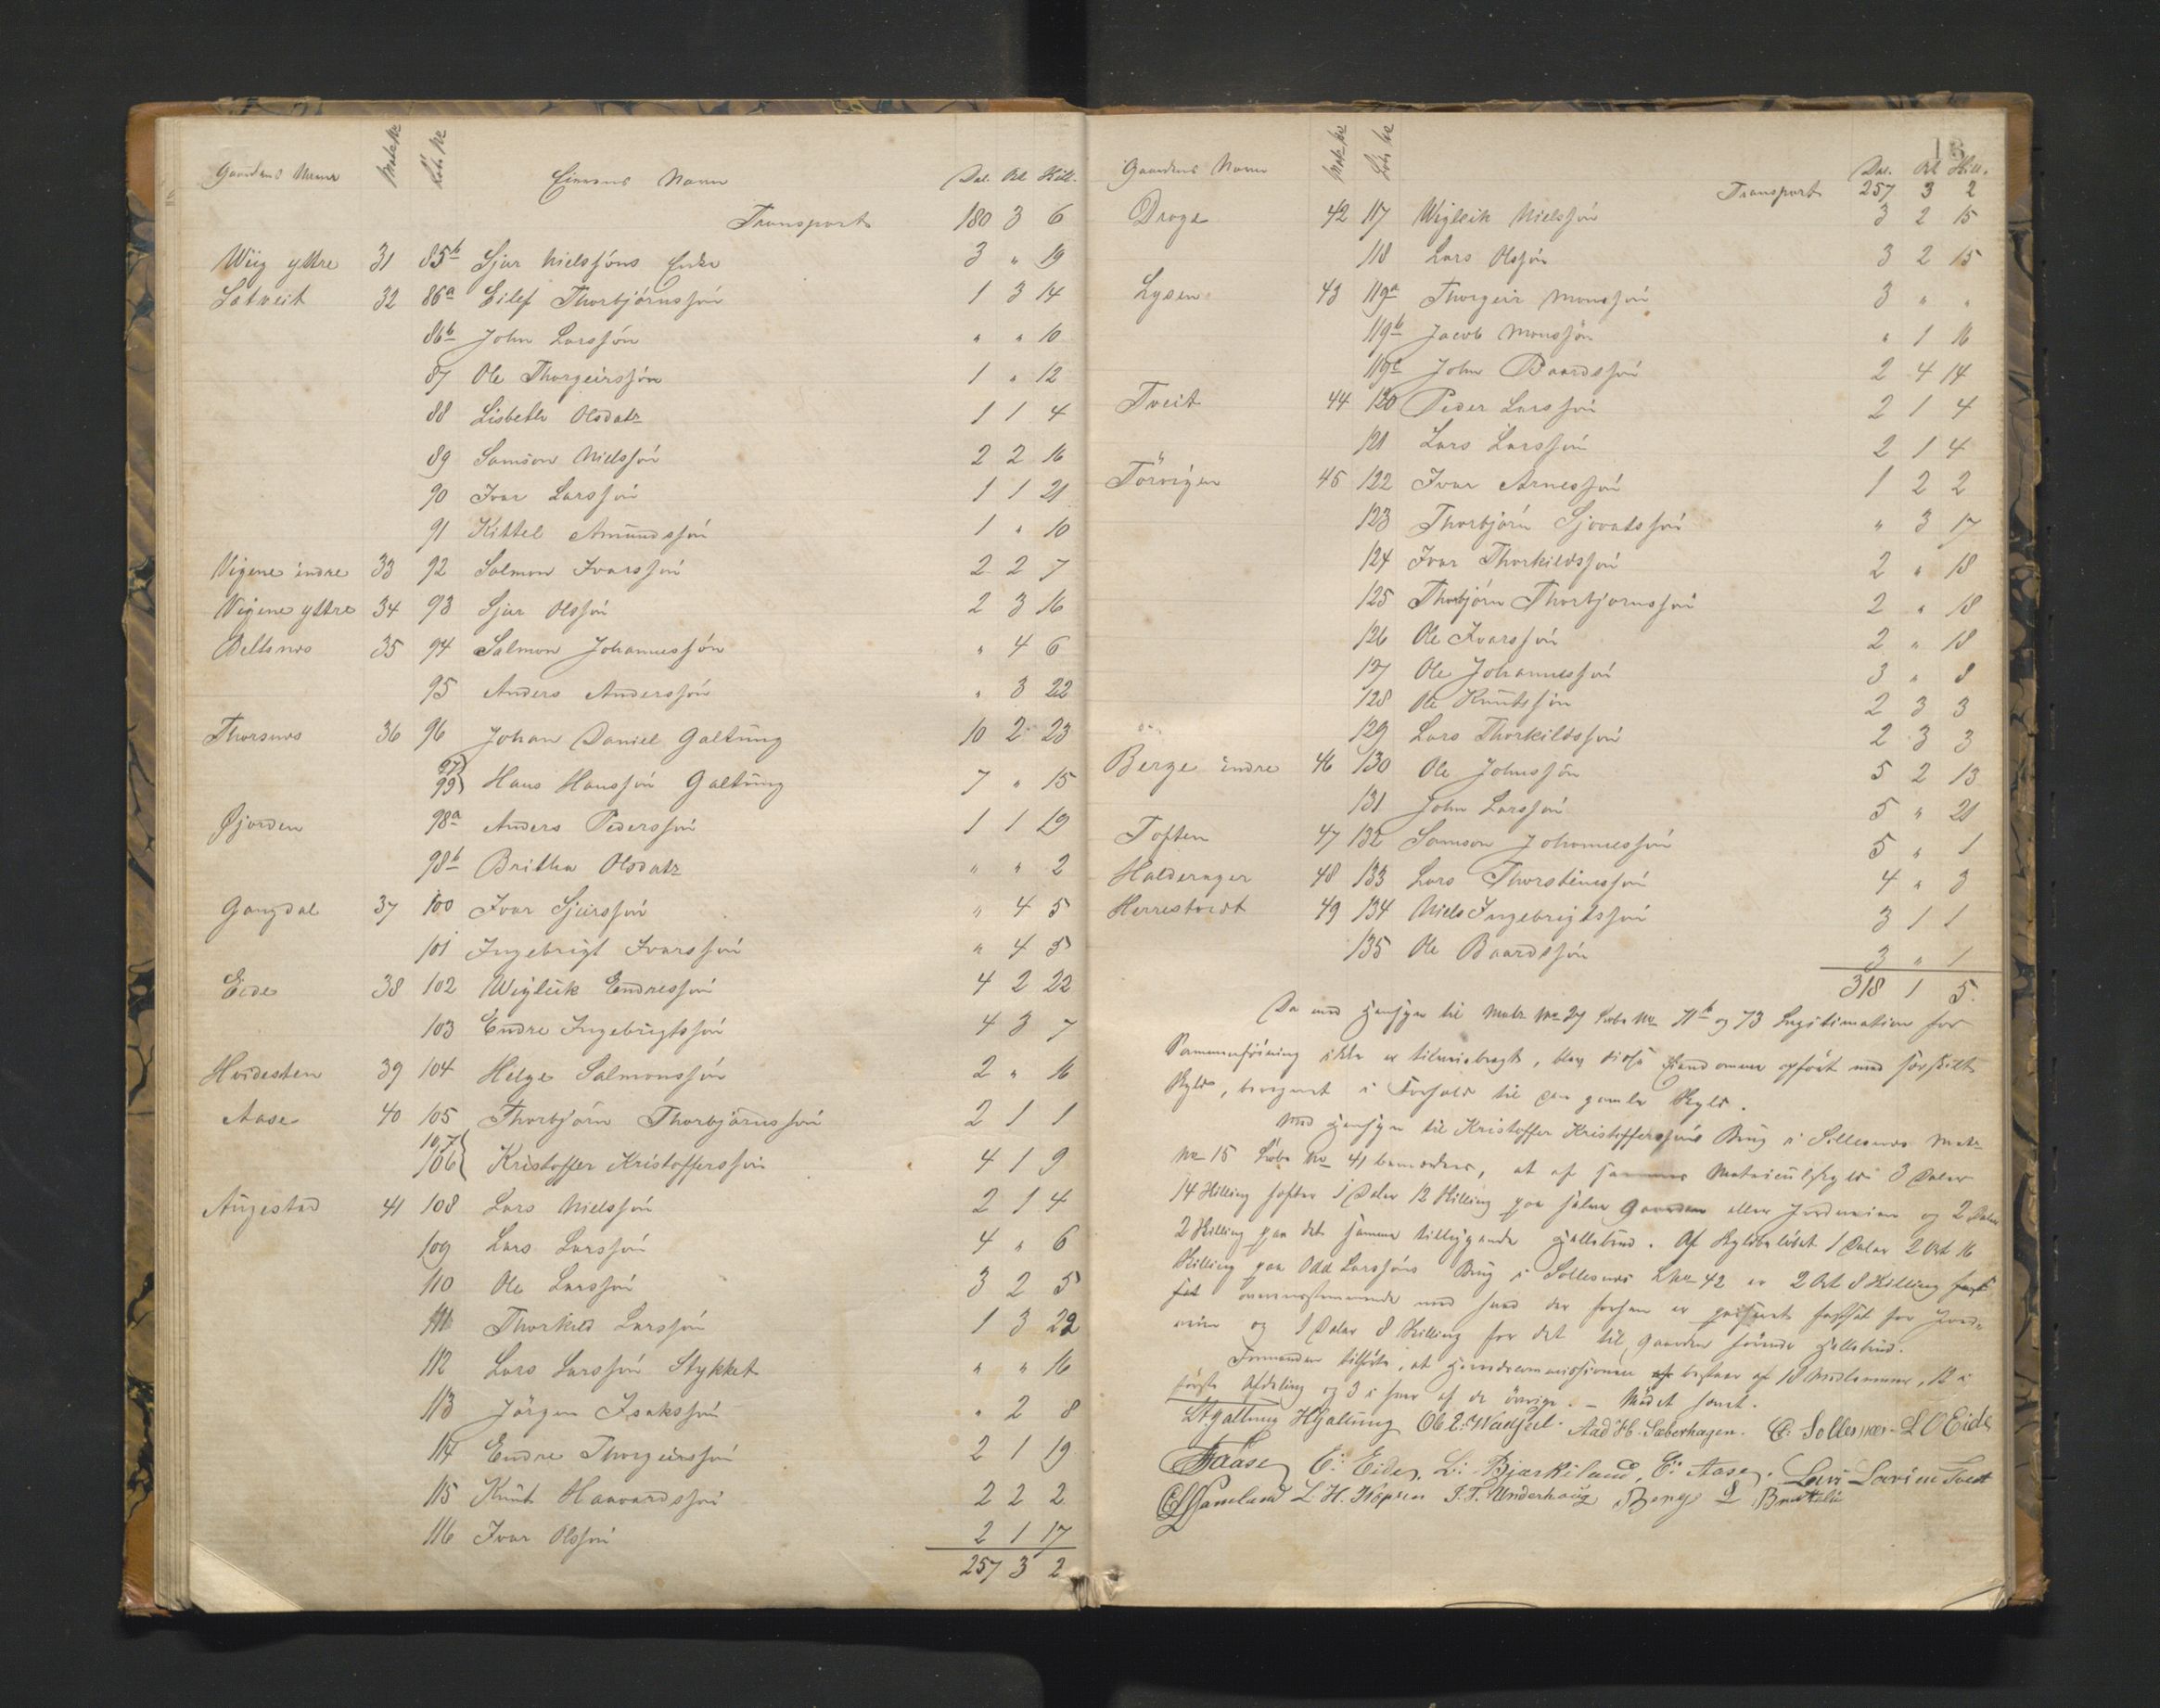 Gaardens Navn Matr. No Løb. No Eierens Navn Dal. Ort Skill.
Transport 180 3 6
Wiig yttre 31 85b Sjur Nielssøns Enke 3 " 19
Sætveit 32 86a Eilef Thorbjørnssøn 1 3 14
86b John Larssøn " " 10
87 Ole Thorgeirssøn 1 " 12
88 Lisbeth Olsdatr 1 1 4
89 Samson Nielssøn 2 2 16
90 Ivar Larssøn 1 1 21
91 Kittel Amundssøn 1 " 10
Vigene indre 33 92 Salmon Ivarssøn 2 2 7
Vigene yttre 34 93 Sjur Olssøn 2 3 16
Beltsnes 35 94 Salmon Johannessøn " 4 6
95 Anders Anderssøn " 3 22
Thorsnes 36 96 Johan Daniel Galtung 10 2 23
97 99 Hans Hanssøn Galtung 7 " 15
Gjorden 98a Anders Pederssøn 1 1 19
98b Britha Olsdatr " " 2
Gangdal 37 100 Ivar Sjurssøn " 4 5
101 Ingebrigt Ivarssøn " 4 5
Eide 38 102 Wigleik Endressøn 4 2 22
103 Endre Ingebrigtssøn 4 3 7
Hvidesten 39 104 Helge Salmonssøn 2 " 16
Aase 40 105 Thorbjørn Thorbjørnssøn 2 1 1
107 106 Kristoffer Kristofferssøn 4 1 9
Augestad 41 108 Lars Nielssøn 2 1 4
109 Lars Larssøn 4 " 6
110 Ole Larssøn 3 2 5
111 Thorkild Larssøn 1 3 22
112 Lars Larssøn Stykket " " 16
113 Jørgen Isakssøn " 2 8
114 Endre Thorgeirssøn 2 1 19
115 Knut Haavardssøn 2 2 2
116 Ivar Olssøn 2 1 17
257 3 2
13
Gaardens Navn Matr. No Løb. No Dal. Ort Skill.
Transport 257 3 2
Drage 42 117 Wigleik Nielssøn 3 2 15
118 Lars Olssøn 3 2 15
Lysen 43 119a Thorgeir Monssøn 3 " "
119b Jacob Monssøn " 1 16
119c John Baardssøn 2 4 14
Tveit 44 120 Peder Larssøn 2 1 4
121 Lars Larssøn 2 1 4
Törvigen 45 122 Ivar Arnessøn 1 2 2
123 Thorbjørn Sjovatssøn " 3 17
124 Ivar Thorkildssøn 2 " 18
125 Thorbjørn Thorbjørnssøn 2 " 18
126 Ole Ivarssøn 2 " 18
127 Ole Johannessøn 3 " 8
128 Ole Knutssøn 2 3 3
129 Lars Thorkildssøn 2 3 3
Berge indre 46 130 Ole Johnssøn 5 2 13
131 John Larssøn 5 " 21
Toften 47 132 Samson Johannessøn 5 " 1
Halderager 48 133 Lars Thorsteinssøn 4 " 3
Herrestvedt 49 134 Niels Ingebrigtssøn 3 1 1
135 Ole Baardssøn 3 " 1
318 1 5.
Da med Hensyn til Matr No 27 Løbe No 71b og 73 Legitimation for
Sammenføining ikke er tilveiebragt, blev disse Eiendomme opført med særskilt
Skyld, beregnet i Forhold til den gamle Skyld.
Med Hensyn til Kristoffer Kristofferssøns Brug i Sollesnes Matr
No 15 Løbe No 41 bemærkes, at af sammes Matriculskyld 3 Daler
14 Skilling hefter 1 Daler 12 Skilling paa selve Gaarden eller Jordveien og 2 Daler
2 Skilling paa det samme tilliggende Qvællebrug. Af Skyldbeløbet 1 Daler 2 Ort 16
Skilling paa Odd Larssøns Brug i Sollesnes LNo 42 er 2 Ort 8 Skilling
overensstemmende med hvad der forhen er fastsat for Jord-
veien og 1 Daler 8 Skilling for det til Gaarden hørende
Formanden tilførte, at Herredscommissionen bestaar af 18 Medlemmer, 12 i
første Afdeling og 3 i hver af de øvrige. – Mødet hævet.
LHgaltung HGaltung Ole E: Aad H. Sæberhagen. E: Sollesnæs. L O Eide
E: Eide, L: Bjørkeland, E: Aase, Lars
Samland L. H. J. T. Underhaug Berge L Brattelie